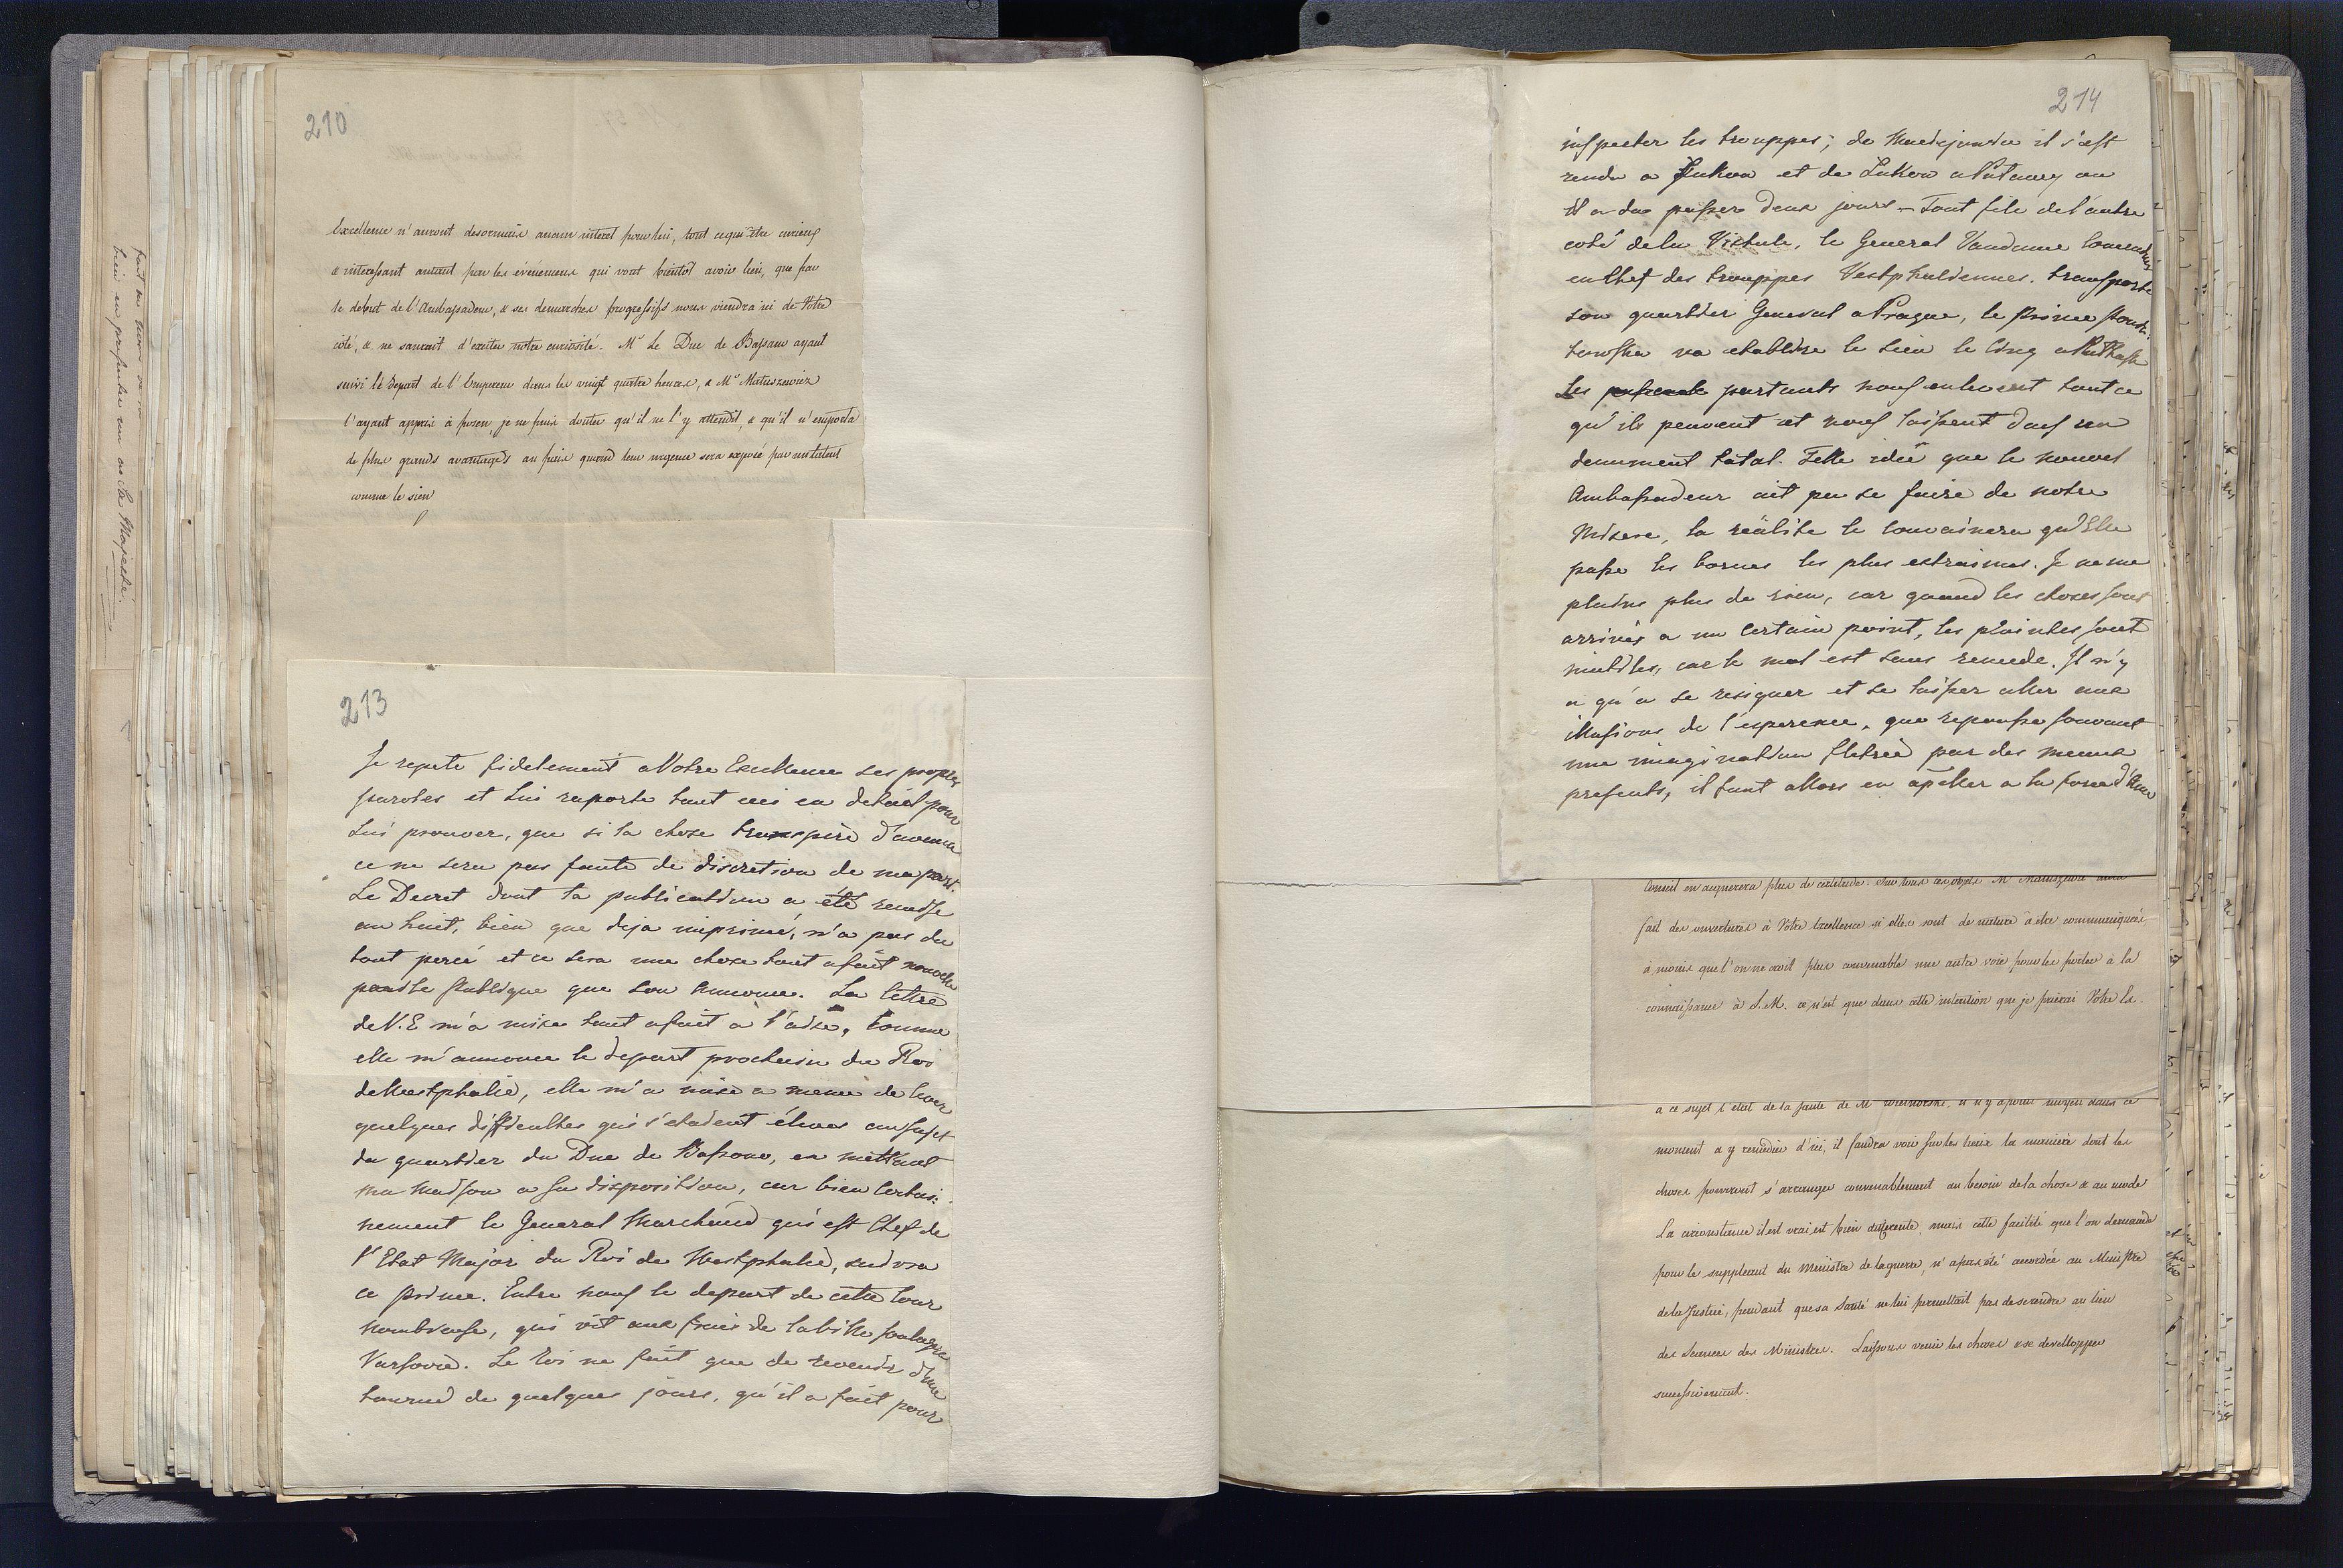 fait ou bien
bien en presenter un au Sa Majesté.
210
Excellence n'auront desormais aucun interet pour lui, tout ce qui être curieux
& interessant autant par les événemens qui vont bientôt avoir lieu, que par
le debut de l'Ambassadeur, & ses demarches progressifs nous viendra ici de Votre
côté, & ne saurait d'exciter notre curiosité. Mr Le Duc de Bassano ayant
suivi le Depart de l'Empereur dans les vingt quatre heures, & Mr Matuszewicz
l'ayant appris à posen, je ne puis douter qu'il ne l'y attendît, & qu'il n'emporta
de plus grands avantages au puis quand leur urgence sera exposé par un talent
comme le sien
213
Je repete fidelement a Votre Excellence ses propres
paroles et Lui raporte tout ceci en detail pour
Lui prouver, que si la chose transpire d'avance
ce ne sera pas faute de discretion de ma part.
Le Decret dont la publication a été remise
au huit, bien que deja imprimé, n'a pas du
tout percé et ce sera une chose tout afait nouvelle
pour le Publique que son Annonce. La lettre
de V.E m'a mise tout afait a l'aise, comme
elle m'annonce le depart prochain du Roi
de Westphalie, elle m'a mise a meme de lever
quelques difficultes qui s'etadent élevés au sujet
du quartier du Duc de Bassano, en mettant
ma maison a sa disposition, car bien certai-
nement le General Marchand qui est Chef de
l'Etat Major du Roi de Westphalie, suivra
ce prince. Entre nous le depart de cette Cour
nombreuse, qui vit aux frais de la ville soulagera
Varsovie. Le Roi ne fait que de revenir d'une
tourné de quelques jours, qu'il a fait pour
214
inspecter les trouppes; de il s'est
rendu a Lukow et de Lukow a Putawy ou
il a du passer deux jours - Tout file de l'autre
coté de la Vistule, le General Vandame Commendant
en Chef des trouppes Vestphaliennes. transporte
son quartier General a Prague, le Prince Ponia-
towski va etablire le sien le cinq a Pultusk
Les partants nous enlevent tout ce
qu'ils peuvent et nous laissent dans un
denument total. Telle idée que le nouvel
Ambassadeur ait pu se faire de notre
Misere, la réalité le convaincra qu'Elle
passe les bornes les plus extraimes. Je ne me
plains plus de rien, car quand les choses sont
arrivés a un certain point, les plaintes sont
inutiles, car le mal est sans remede. Il n'y
a qu'a se resigner et se laisser aller aux
illusions de l'esperence, que repousse souvent
une imagination fletrie par des meaux
presents, il faut allors en apeller a la force d'Ame
Conseil en acquerera plus de certitude. Sur tous ces objets Mr Matuszewic aura
fait des ouvertures à Votre Excellence si elles sont de nature à etre communiquées,
à moins que l'on ne croit plus convenable une autre voie pour les porter à la
connaissance à S.M. ce n'est que dans cette intention que je prierai Votre Ex.
a ce sujet l'etat de la santé de Mr Wielhorski, il n'y a point moyen dans ce
moment a y remedier d'ici, il faudra voir sur les lieux la maniere dont les
choses pourront s'arranger convenablement au besoin de la chose & au mode
La circonstance il est vrai est bien differente, mais cette facilité que l'on demande
pour le suppleant du Ministre de la guerre, n'a pas été accordée au Ministre
de la Justice, pendant que sa Santé ne lui permettait pas de se rendre au lieu
des Seances des Ministres. Laissons venir les choses & se developper
successivement.